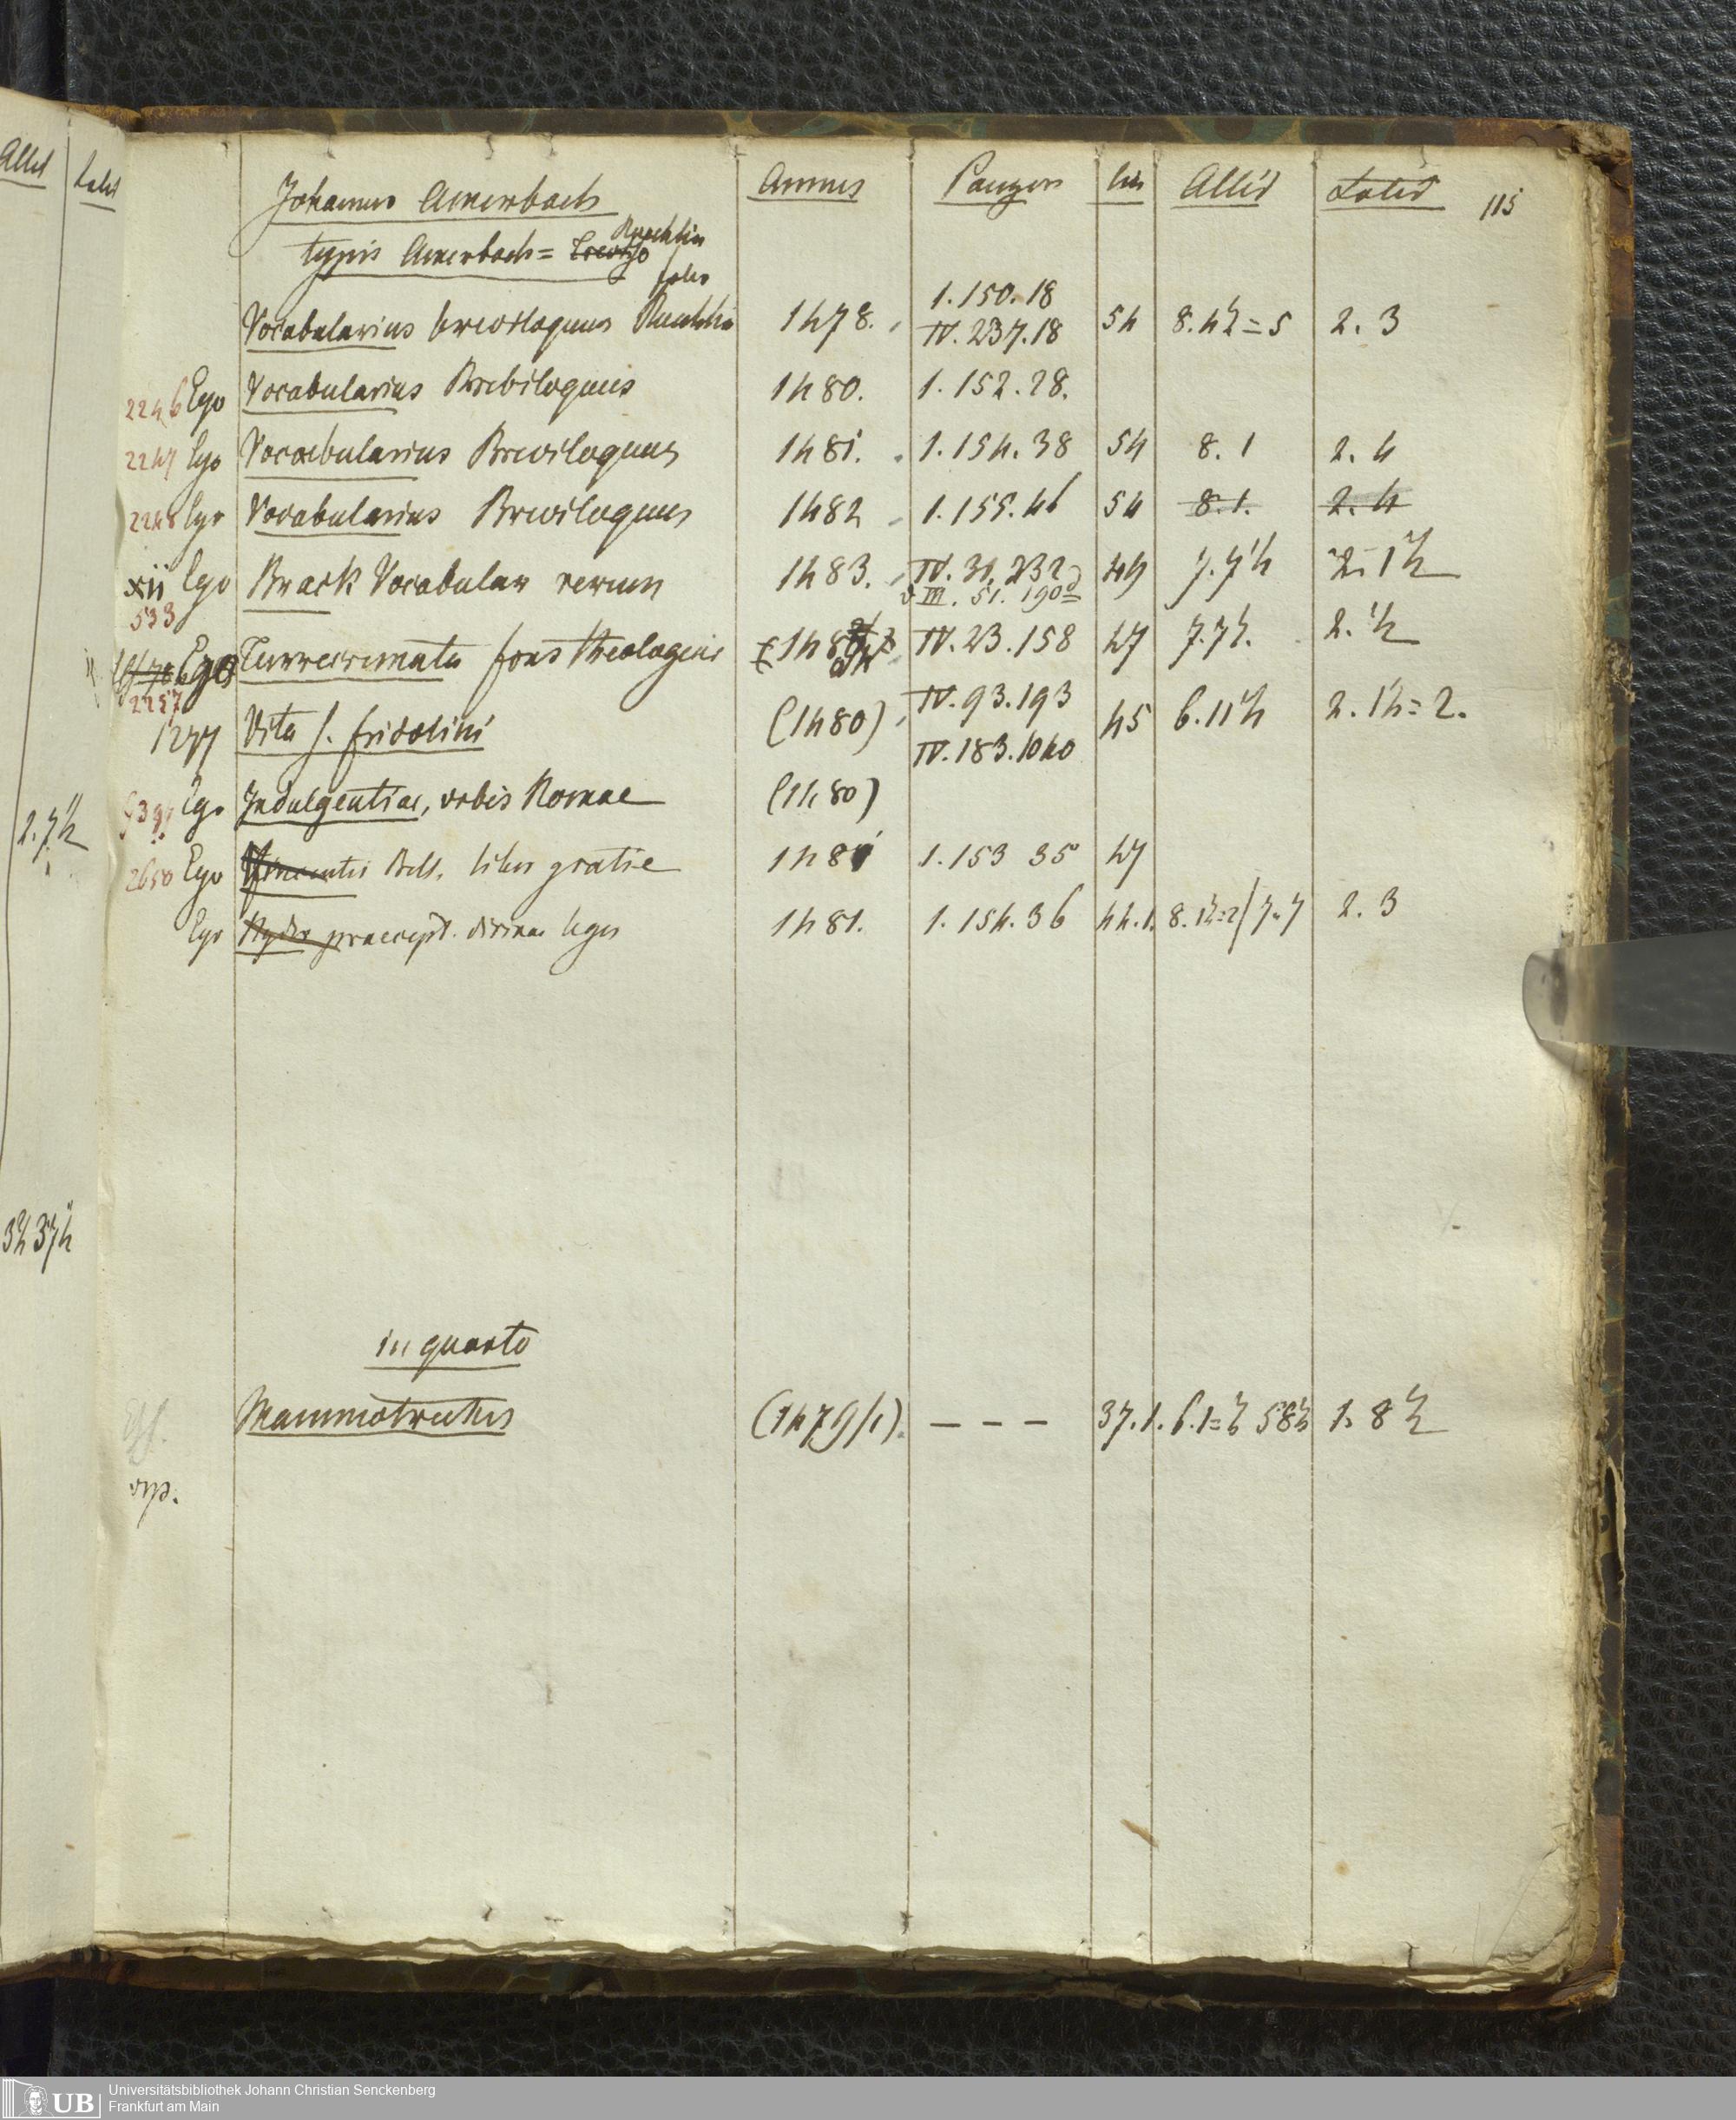 Altid Latid
Johannes Amerbach Annus Panzer lin Altid Latid 115
typis Amerbach = Reuchlin
folio
1.150.18
Vocabularius breviloquus Reuchlin 1478. IV.237.18 54 8.4½=5 2.3
2246 Ego Vocabularius Breviloquus 1480. 1.152.28.
2247 Ego Vocabularius Breviloquus 1481. 1.154.38 54 8.1 2.4
2248 Ego Vocabularius Breviloquus 1482 1.155.46 54 8.1. 2.4
xii Ego Brack Vocabular rerum 1483. IV.31.232 49 7.7½ 2.1½
533 III. 51. 190
Ego Turrecremata fons theologicus IV.23.158 47 7.7½. 2.½
2257 IV.93.193
1277 Vita S. Fridolini (1480) 45 6.11½ 2.1½=2.
IV.183.1040
Ego Indulgentiae, urbis Romae (1480)
2.7½
2650 Ego Bell. liber gratie 1481 1.153 35 47
Ego Nyder praecept. divinae legis 1481. 1.154.36 44.1. 8.1½=2/7.7 2.3
in quarto
Mammotrectus (1479/1). - - - 37.1. 6.1=½ 58½ 1.8½
UB
Universitätsbibliothek Johann Christian Senckenberg
Frankfurt am Main